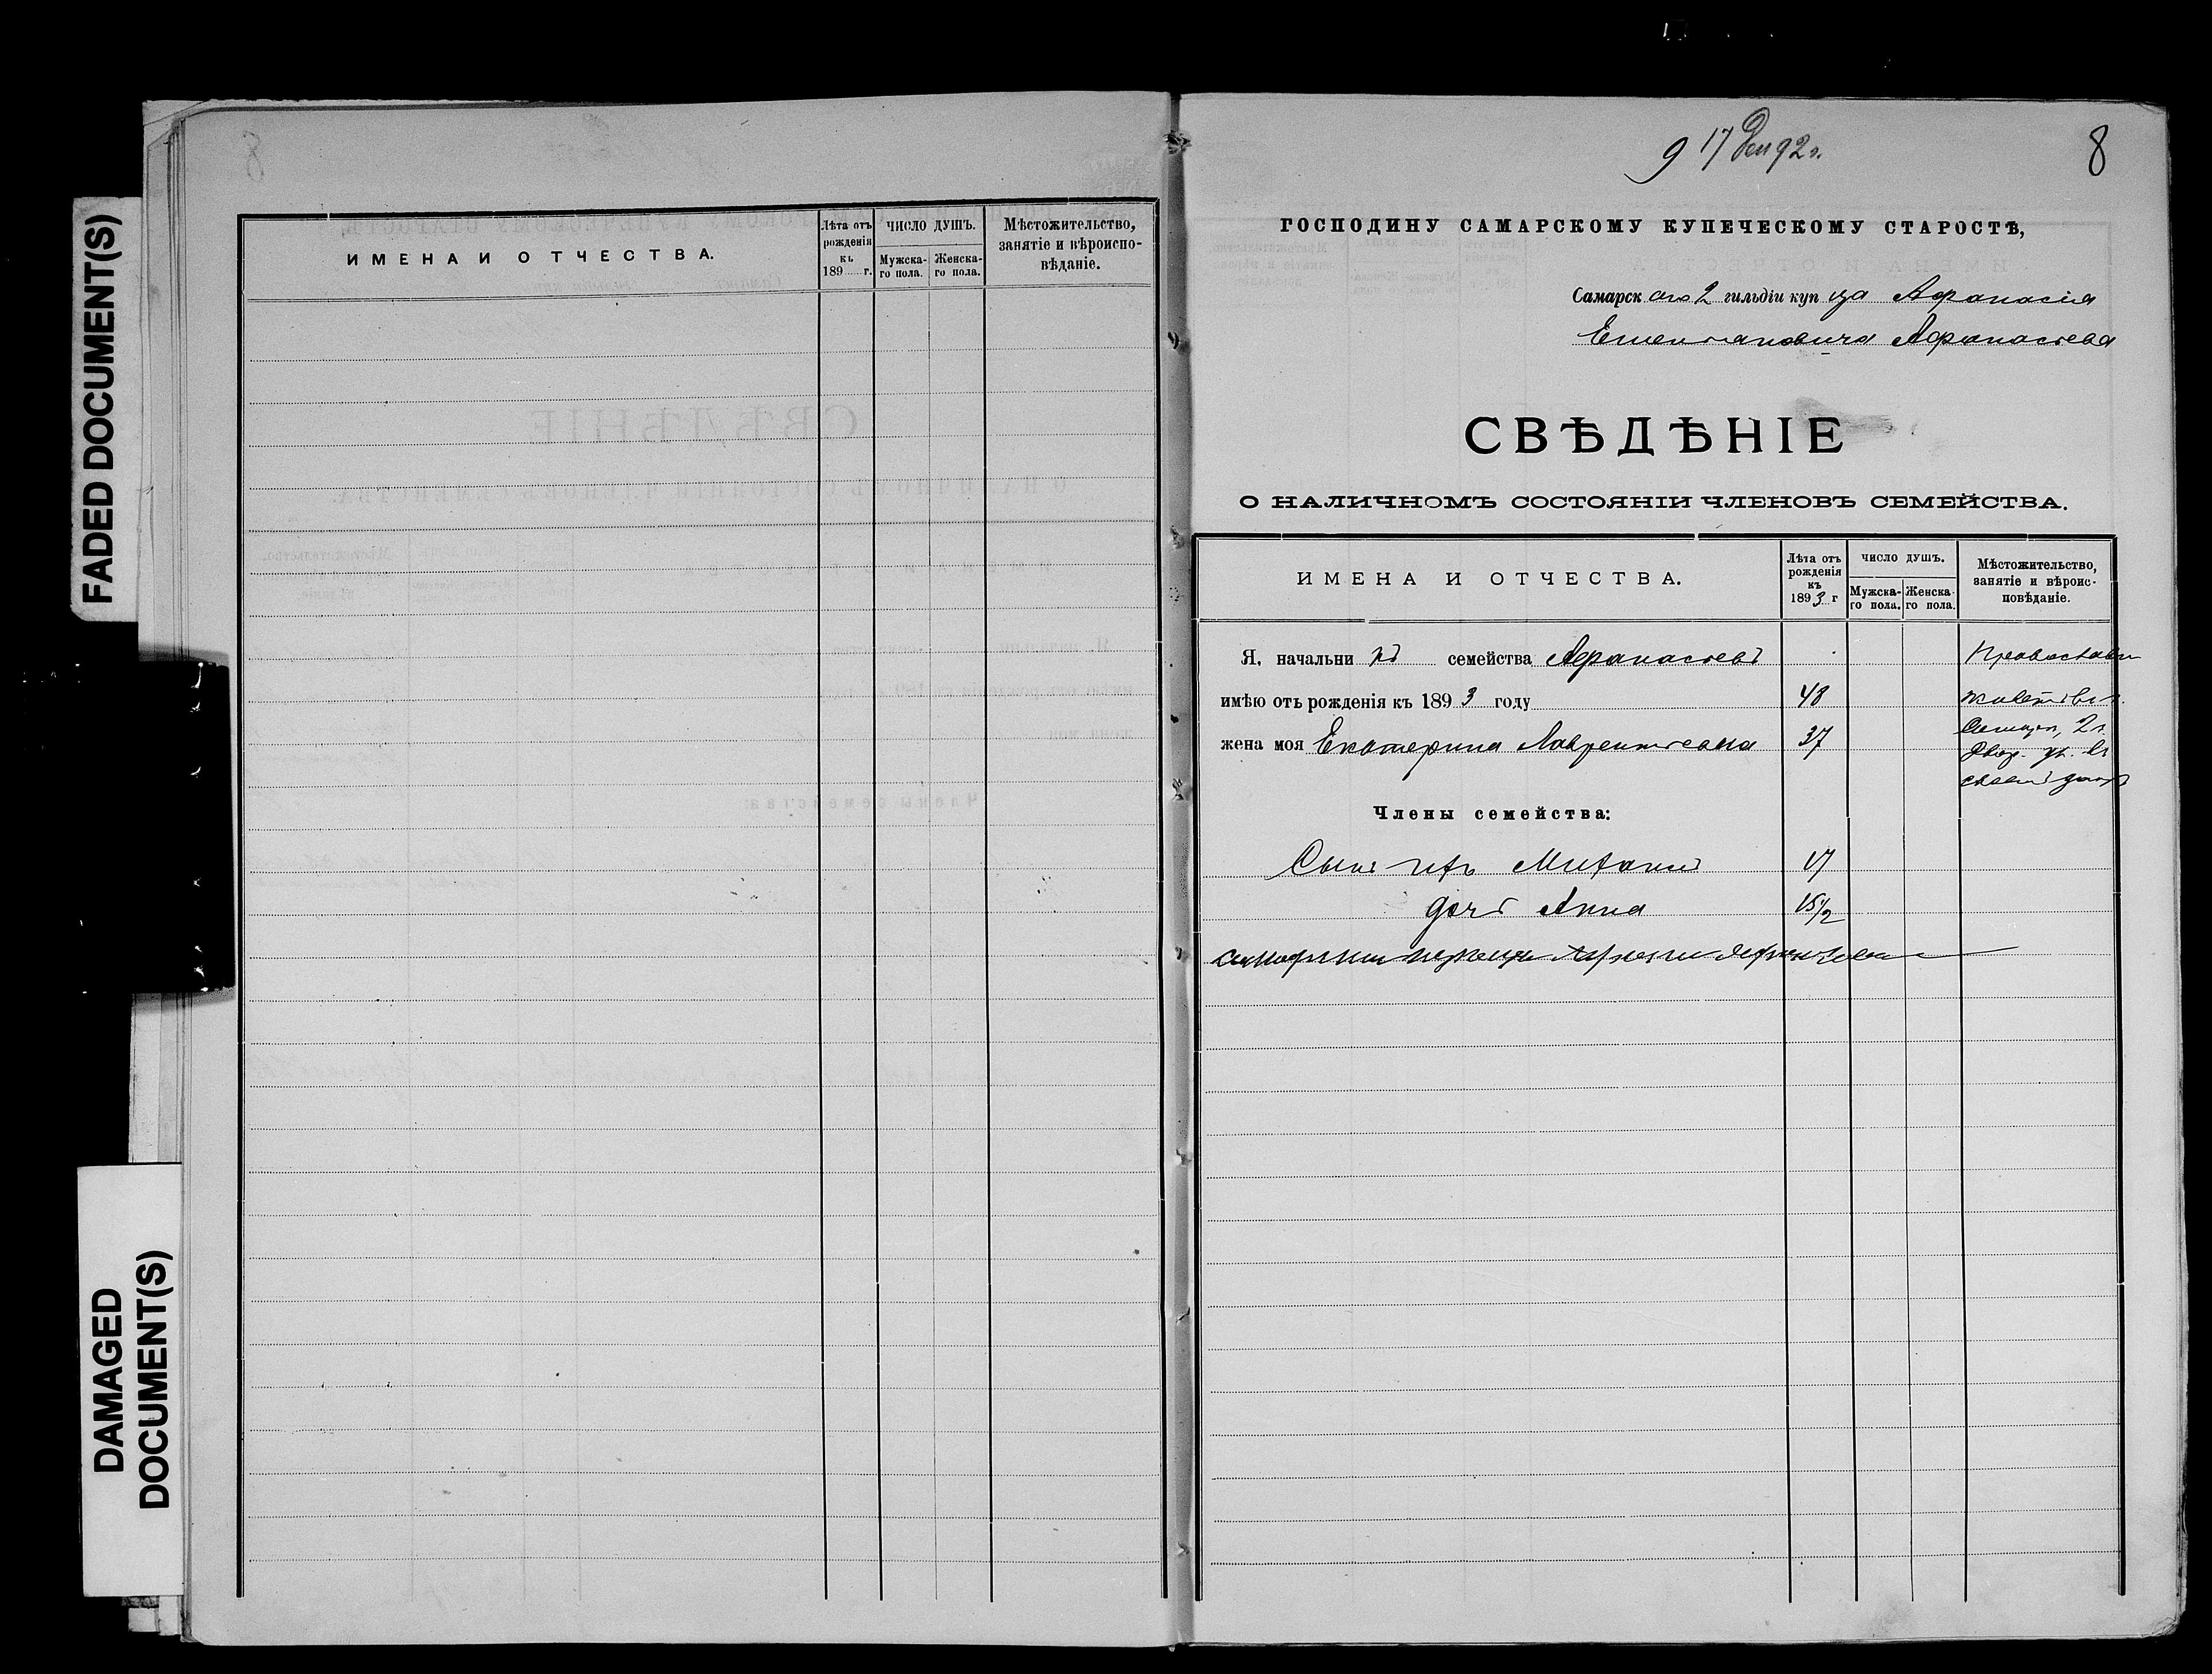 FADED DOCUMENT(S)
DAMAGED
DOCUMENT(S)
ИМЕНА И ОТЧЕСТВА.
Лѣта отъ
рожденія
къ
189 г.
ЧИСЛО ДУШЪ.
Мужска-
го пола.
Женска-
го пола.
Мѣстожительство,
занятіе и вѣроиспо-
вѣданіе.
9 17 Дек 92 г.
8
ГОСПОДИНУ САМАРСКОМУ КУПЕЧЕСКОМУ СТАРОСТѢ,
Самарскаго 2 гильдіи купца Афанасія
Афанасьева
СВѢДѢНІЕ
О НАЛИЧНОМЪ СОСТОЯНІИ ЧЛЕНОВЪ СЕМЕЙСТВА.
ИМЕНА И ОТЧЕСТВА.
Лѣта отъ
рожденія
къ
1893 г
ЧИСЛО ДУШЪ.
Мужска-
го пола.
Женска-
го пола.
Мѣстожительство,
занятіе и вѣроис-
повѣданіе.
Я, начальникъ семейства Афанасьевъ
имѣю отъ рожденія къ 1893 году 48
жена моя Екатерина Лаврентьевна 37
Православн
2
Двор. ул. въ
своемъ домѣ
Члены семейства:
Сынъ ихъ 17
дочь Анна 15 1/2